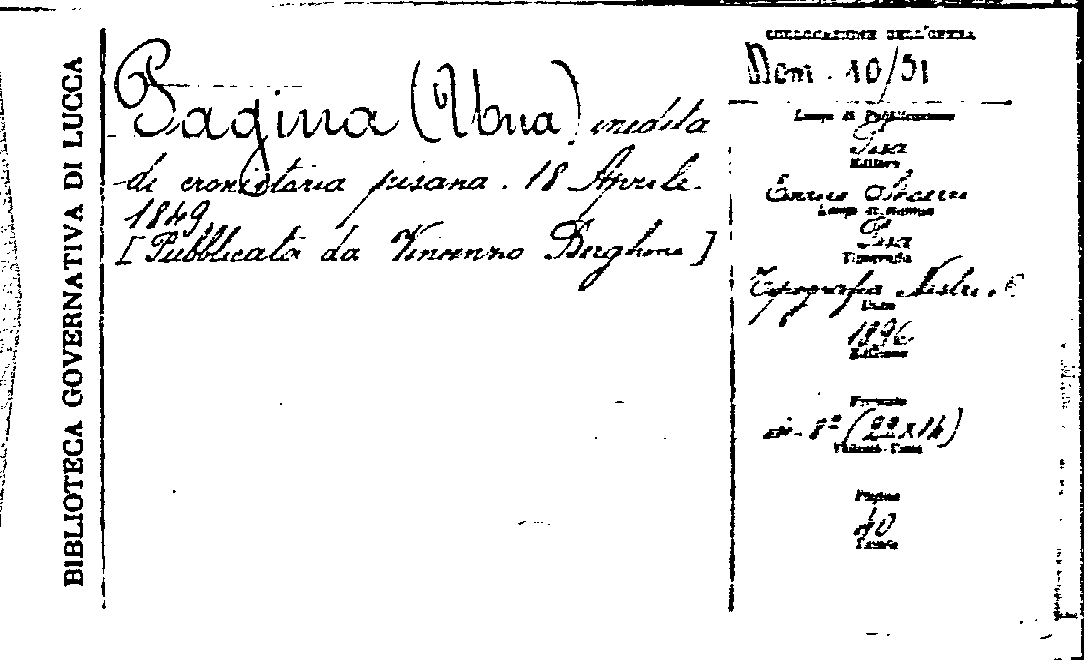 BIBLIOTECA GOVERNATIVA DI LUCCA
Pagina (Una) inedita
di cronistoria pisana. 18 Aprile
1849
[Pubblicata da Vincenzo]
COLLOCAZIONE DELL'OPERA
10/51
Luogo di Pubblicazione
Pisa
Editore
Luogo di Stampa
Pisa
Tipografia
Tipografia Nistri.
Data
1896
Edizione
Formato
in-8º (22x14)
Volumi-Tomi
Pagine
10
Tavole